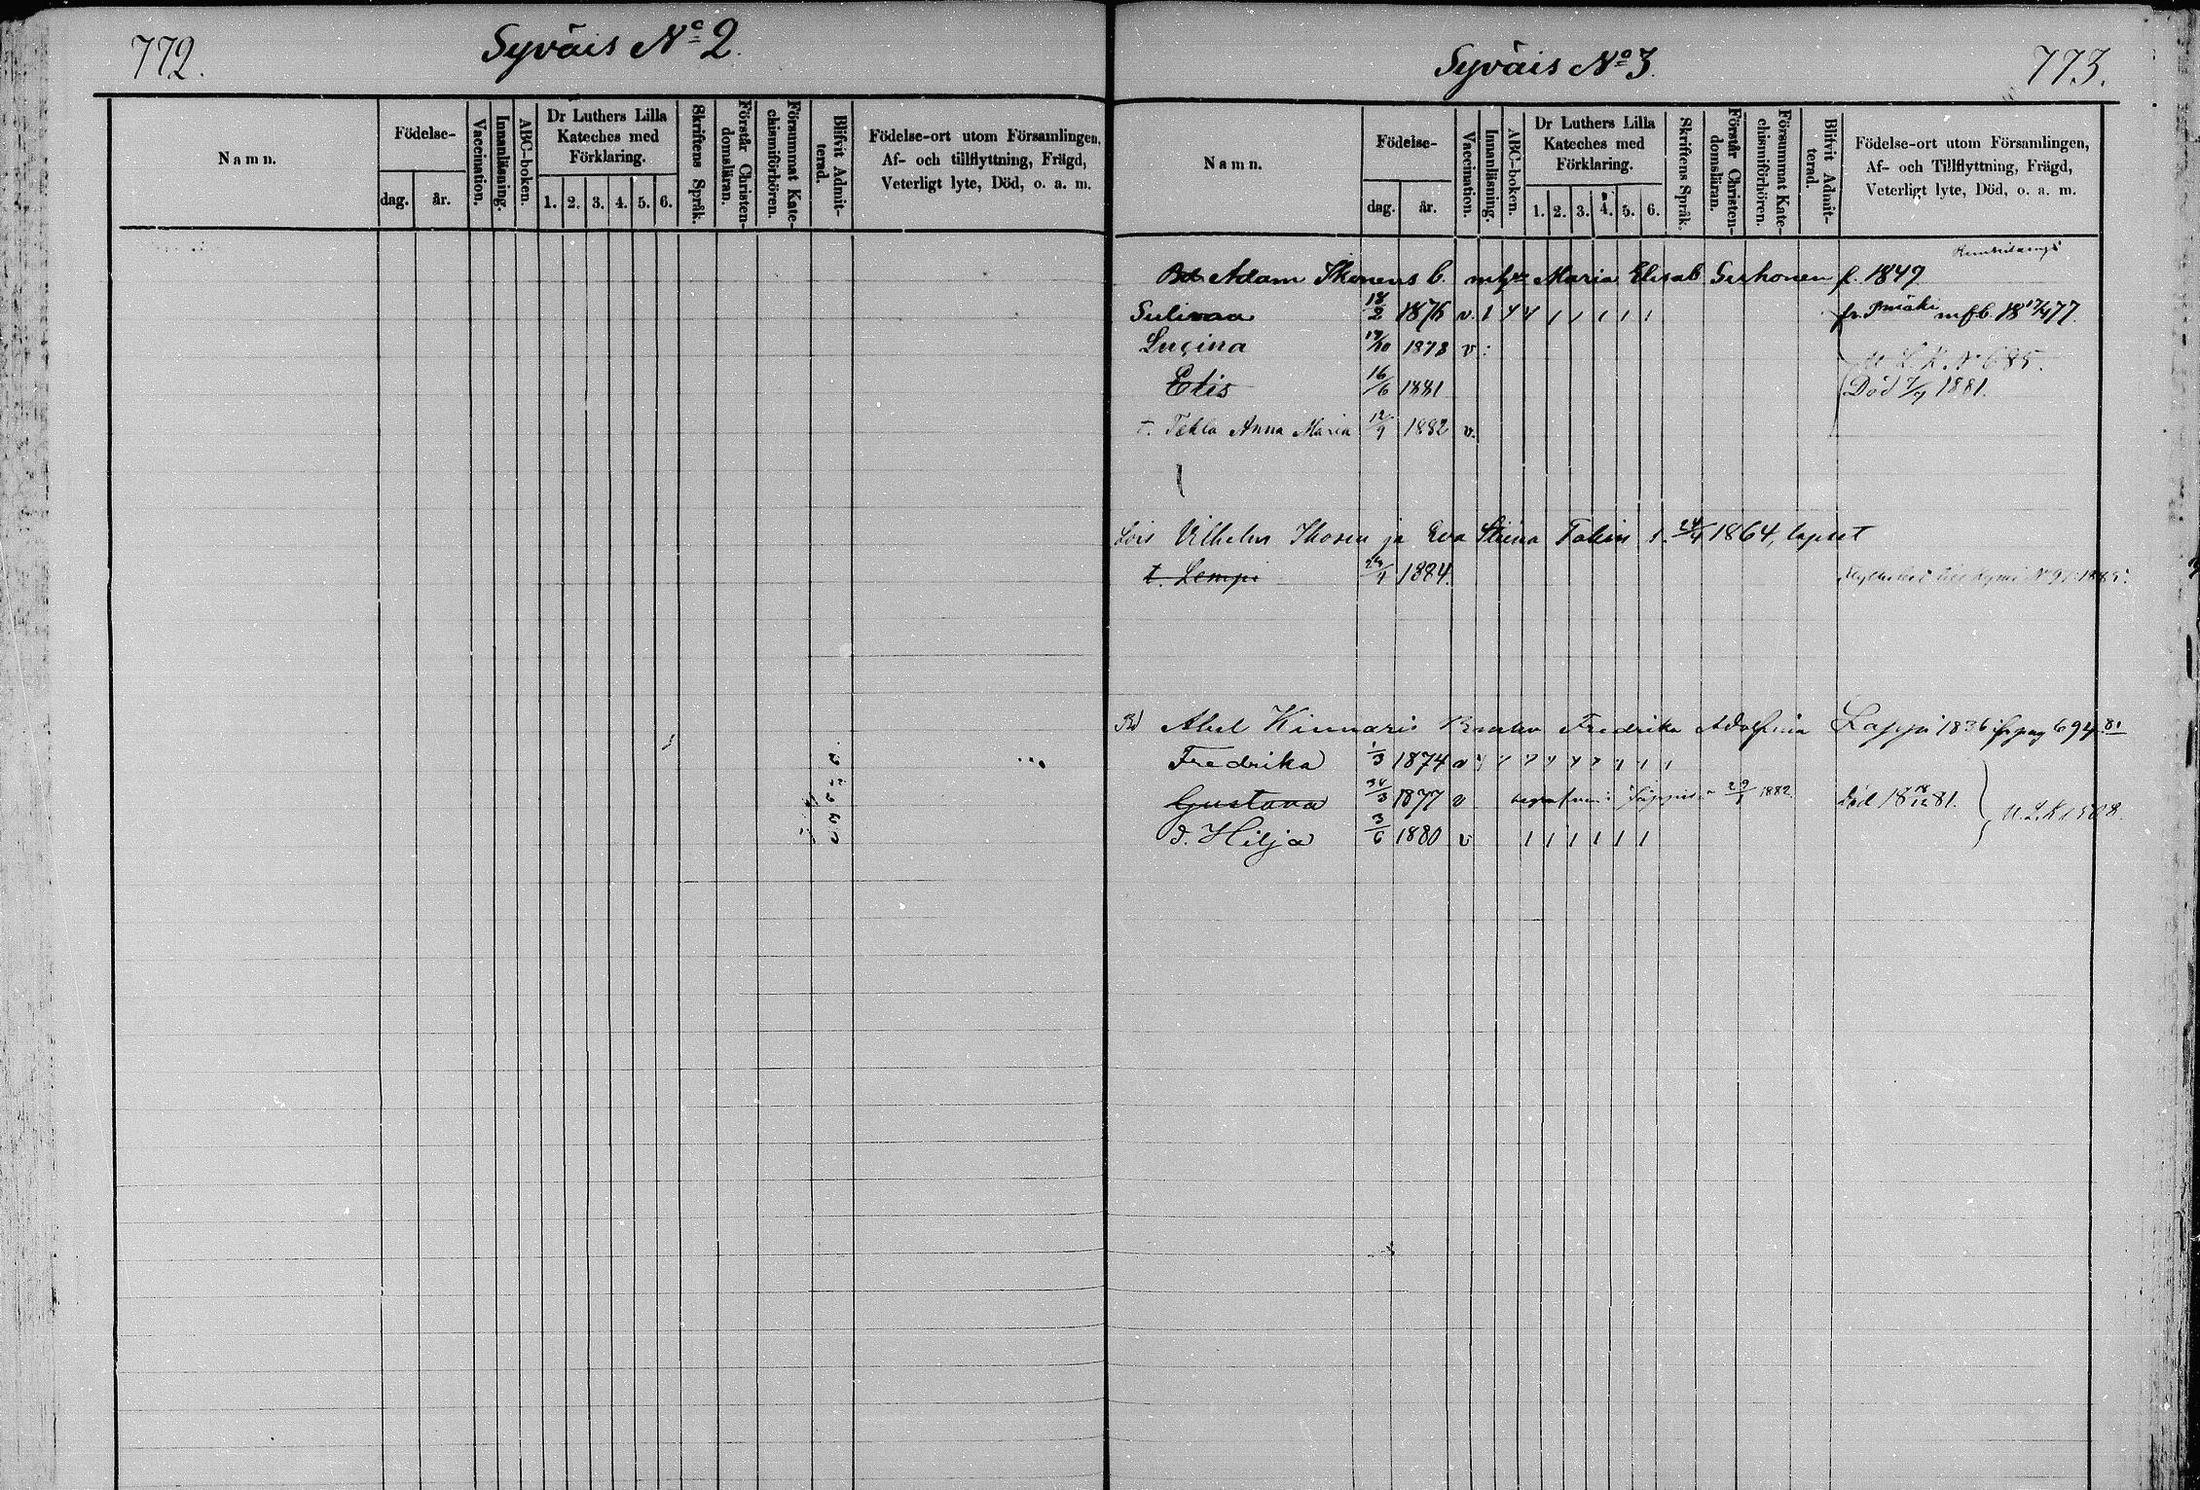 772.
Syväis Nº 2.
Namn.
Födelse-
dag.
år.
Vaccination.
Innanläsning.
ABC-boken.
Dr Luthers Lilla
Kateches med
Förklaring.
1. 2. 3. 4. 5. 6.
Skriftens Språk.
Förstår Christen-
domsläran.
Försummat Kate-
chismiförhören.
Blifvit Admit-
terad.
Födelse-ort utom Församlingen,
Af- och tillflyttning, Frägd,
Veterligt lyte, Död, o. a. m.
Syväis Nº 3.
773.
Namn.
Födelse-
dag.
år.
Vaccination.
Innanläsning.
ABC-boken.
Dr Luthers Lilla
Kateches med
Förklaring.
1. 2. 3. 4. 5. 6.
Skriftens Språk.
Förstår Christen-
domsläran.
Försummat Kate-
chismiförhören.
Blifvit Admit-
terad.
Födelse-ort utom Församlingen,
Af- och Tillflyttning, Frägd,
Veterligt lyte, Död, o. a. m.
Adam Ikonens b. m hu Maria Elisab Sirkonen f. 1849
18/2 1876 v. mfb. 18 17/4 77.
Lucina 17/10 1878 v.
U. L. K. Nº 685.
Elis 16/6 1881 Död 7/7 1881.
t. Tekla Anna Maria 12/9 1882 v.
Lois Vilhelm Ikosen ja Eva Stiina s. 24/4 1864, lapset
t. Lempi 24/4 1884. Nº 91 1885.
Bd Abel Kinnaris Enkan Fredrika Adolfina Lappi 1836 fr pag 694 81
Fredrika 1/3 1874 v
Gustava 31/3 1877 v 29/1 1882 död 18 18/12 81.
U. L. K 1508.
d. Hilja 3/6 1880 v